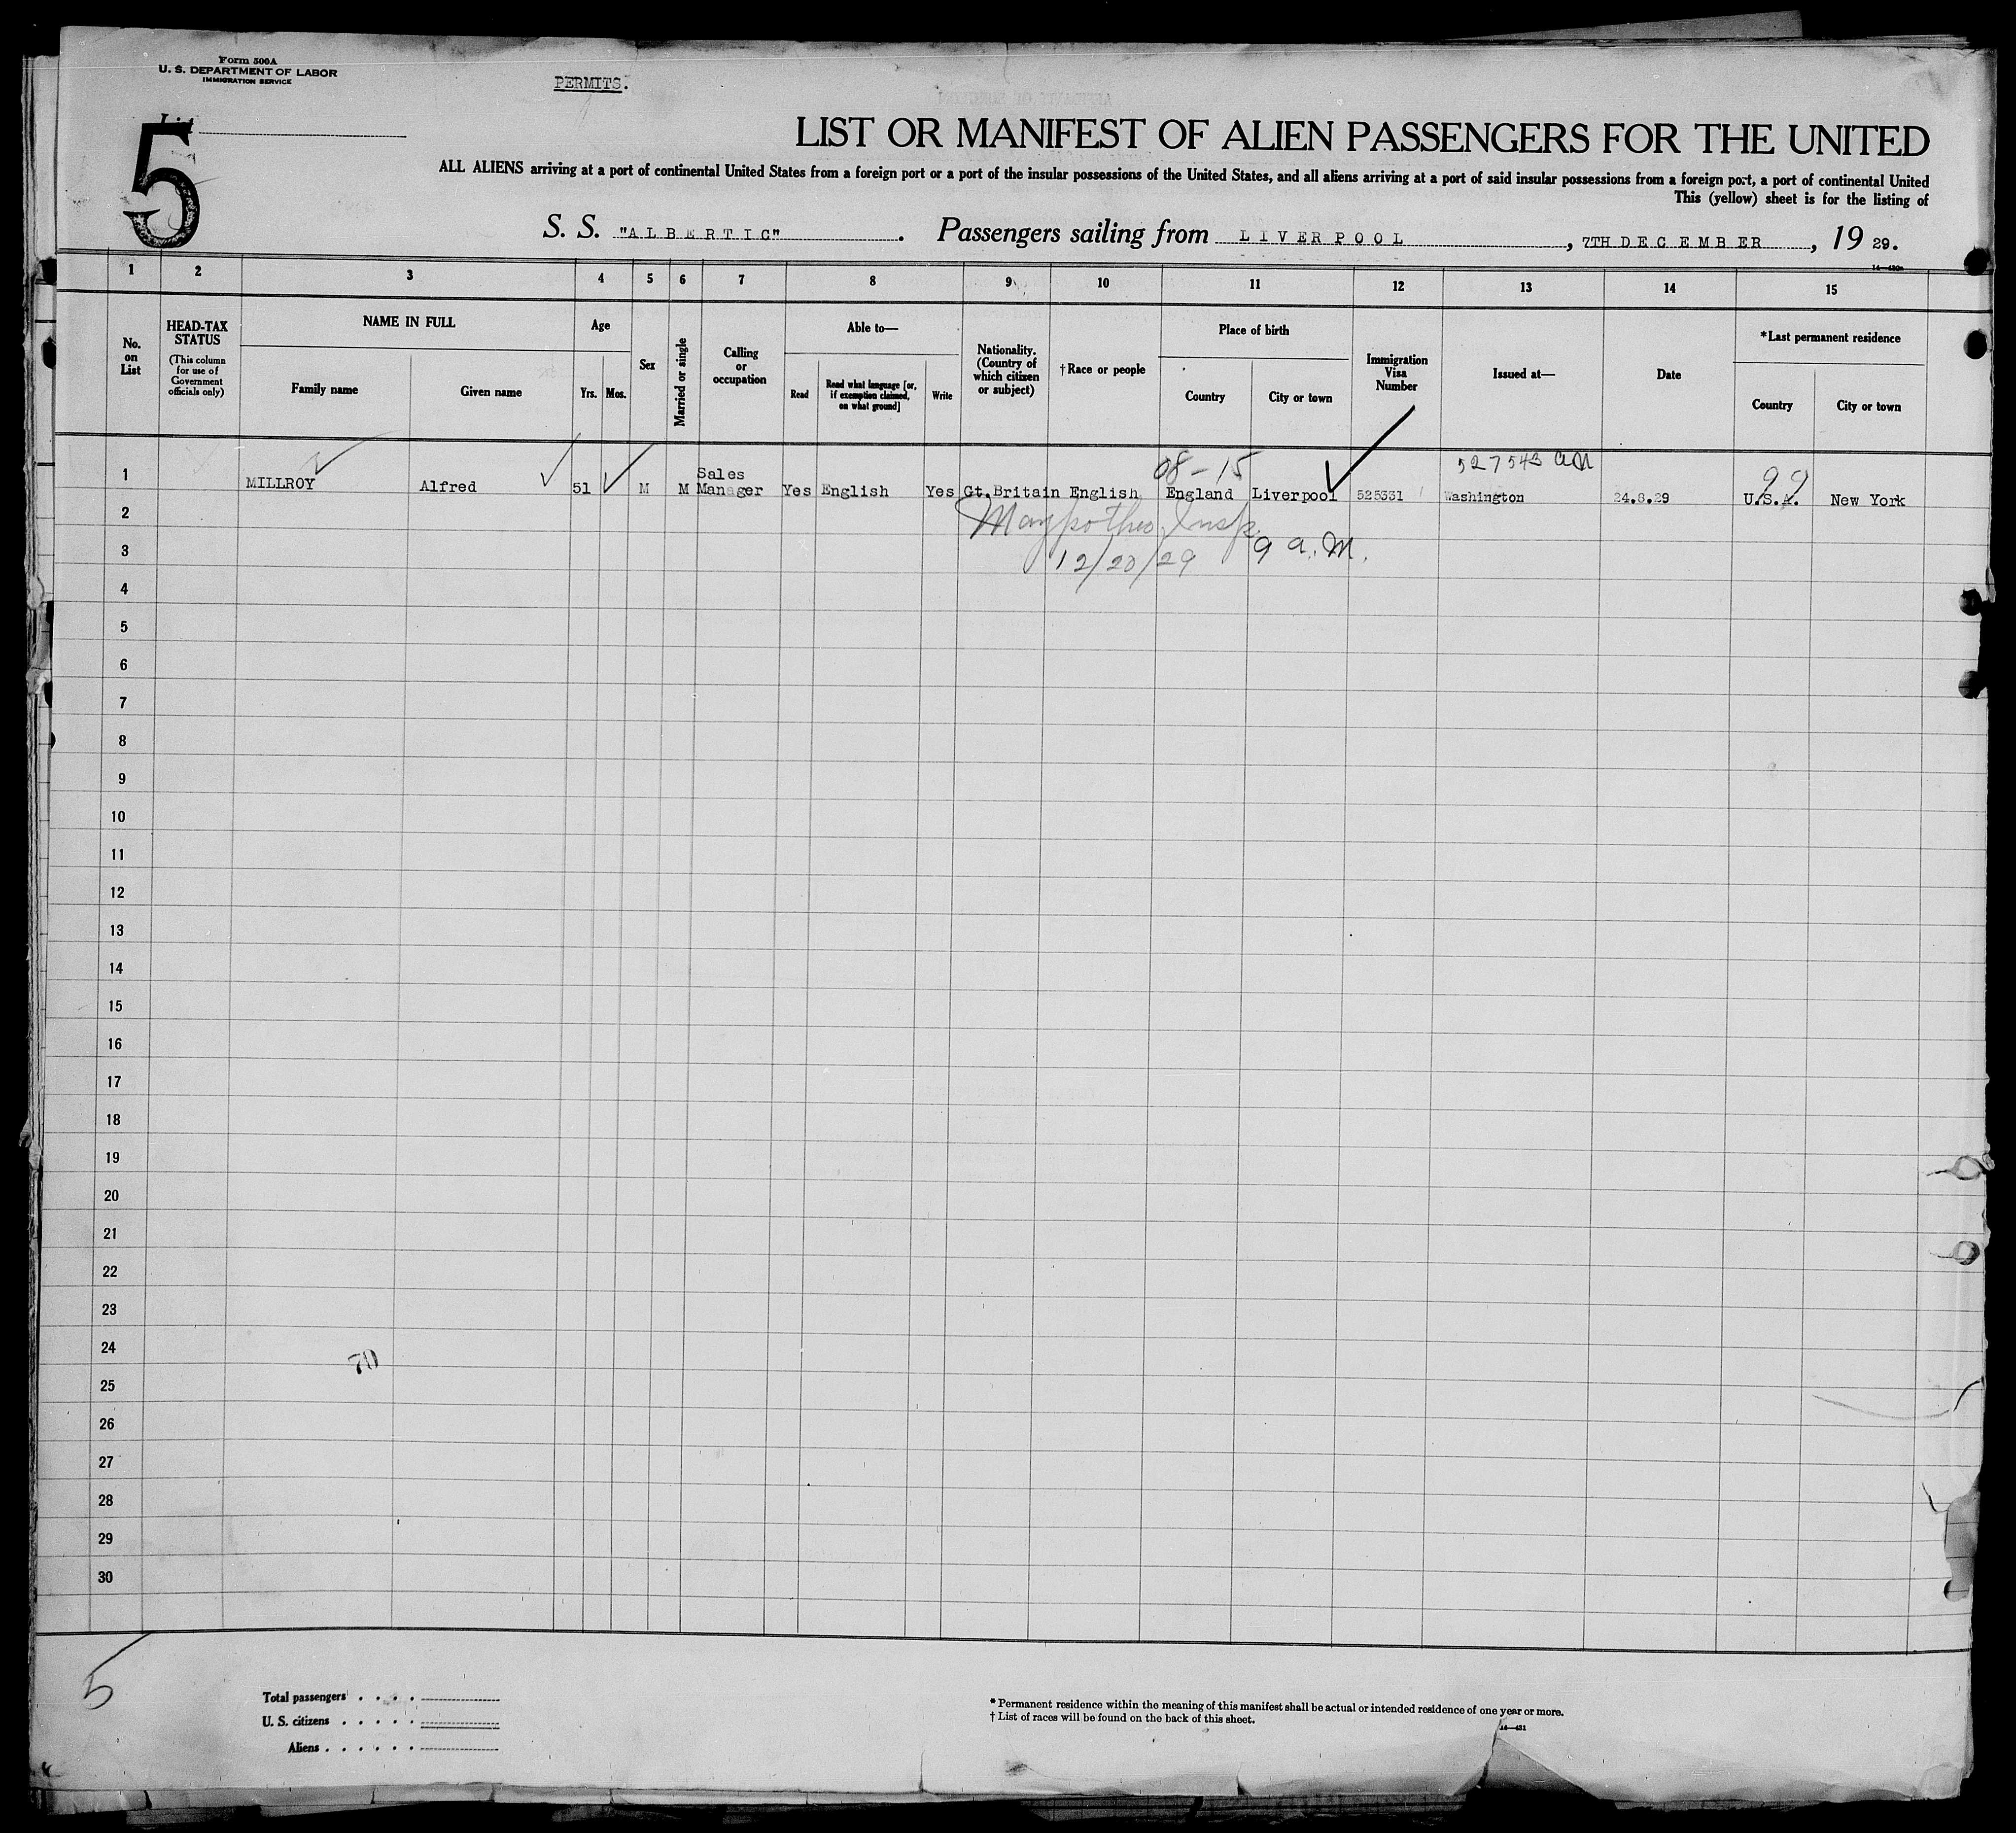 Form 500A
U. S. DEPARTMENT OF LABOR
IMMIGRATION SERVICE
PERMITS.
List
5
LIST OR MANIFEST OF ALIEN PASSENGERS FOR THE UNITED
ALL ALIENS arriving at a port of continental United States from a foreign port or a port of the insular possessions of the United States, and all aliens arriving at a port of said insular possessions from a foreign port, a port of continental United
This (yellow) sheet is for the listing of
S. S. "ALBERTIC". Passengers sailing from LIVERPOOL, 7TH DECEMBER, 19 29.
1 2 3 4 5 6 7 8 9 10 11 12 13 14 15
No. on List
HEAD-TAX STATUS
(This column for use of Government officials only)
NAME IN FULL
Family name
Given name
Age
Yrs. Mos.
Sex
Married or single
Calling or occupation
Able to—
Read
Read what language [or, if exemption claimed, on what ground]
Write
Nationality. (Country of which citizen or subject)
†Race or people
Place of birth
Country
City or town
Immigration Visa Number
Issued at—
Date
*Last permanent residence
Country
City or town
08-15 527543 99
1 MILLROY Alfred 51 M M Sales Manager Yes English Yes Gt.Britain English England Liverpool 525331 Washington 24.8.29 U.S.A. New York
2 Insp.
3 12/20/29 9 a.m.
4
5
6
7
8
9
10
11
12
13
14
15
16
17
18
19
20
21
22
23
24
70
25
26
27
28
29
30
5
Total passengers
U. S. citizens
Aliens
* Permanent residence within the meaning of this manifest shall be actual or intended residence of one year or more.
† List of races will be found on the back of this sheet.
14—431